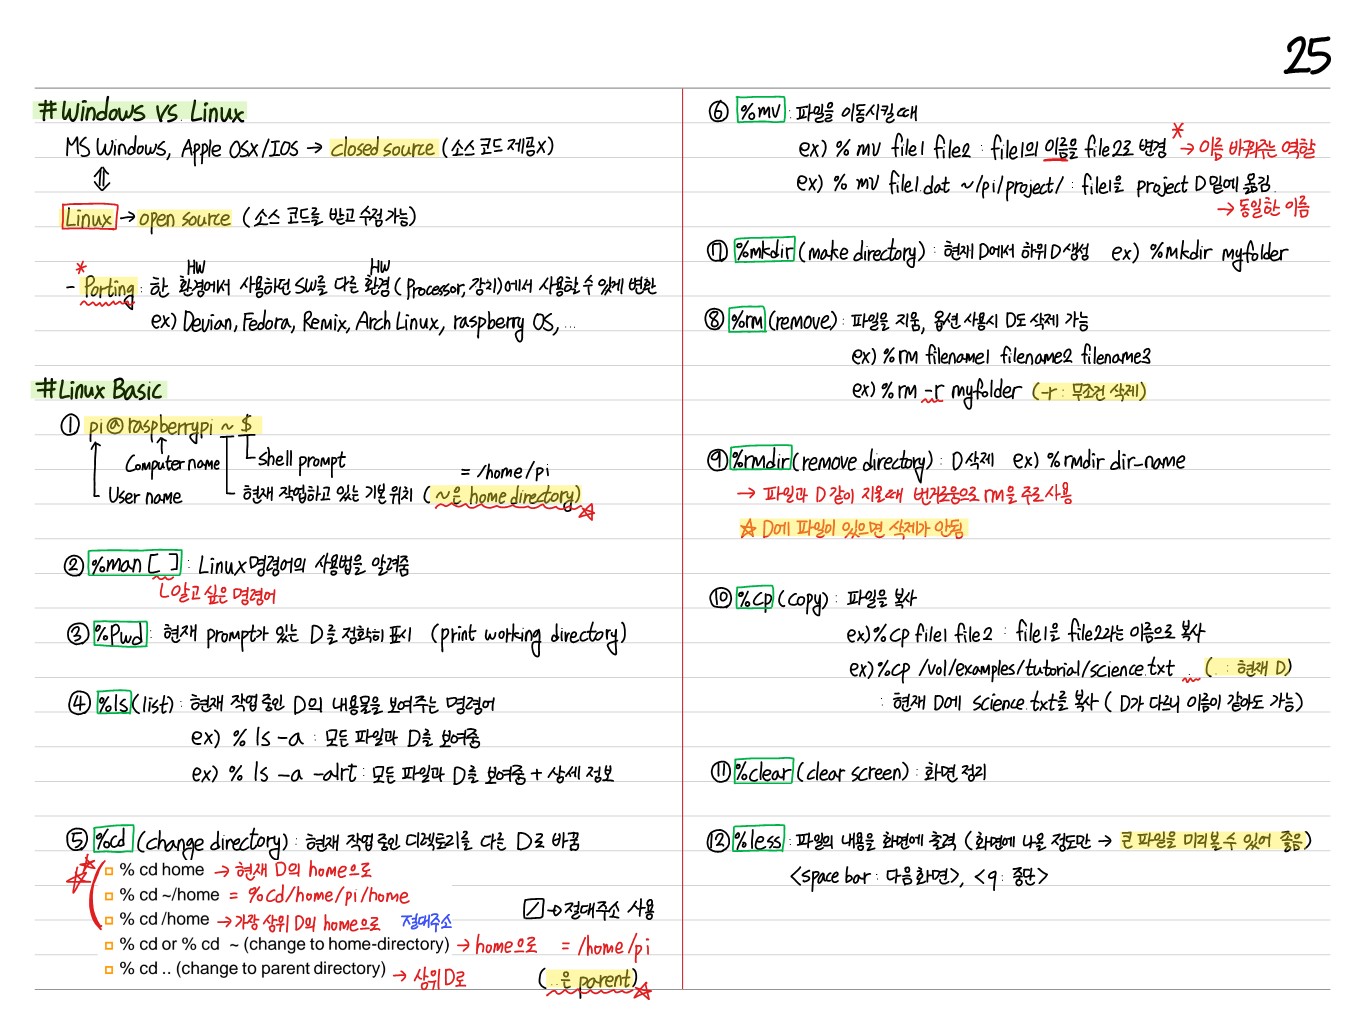 25
#Windows vs. Linux
MS Windows, Apple OSX/IOS → closed source (소스 코드 제공X)
⇕
Linux → open source (소스 코드를 받고 수정 가능)
HW HW
* - Porting : 한 환경에서 사용하던 SW를 다른 환경(Processor, 장치)에서 사용할 수 있게 변환
ex) Devian, Fedora, Remix, Arch Linux, raspberry OS, ...
#Linux Basic
① pi@raspberrypi ~ $
Computer name
shell prompt
= /home/pi
User name
현재 작업하고 있는 기본 위치 (~은 home directory) ☆
② %man [ ] : Linux 명령어의 사용법을 알려줌
알고 싶은 명령어
③ %Pwd : 현재 prompt가 있는 D를 정확히 표시 (print working directory)
④ %ls (list) : 현재 작업 중인 D의 내용물을 보여주는 명령어
ex) % ls -a : 모든 파일과 D를 보여줌
ex) % ls -a -alrt : 모든 파일과 D를 보여줌 + 상세 정보
⑤ %cd (change directory) : 현재 작업 중인 디렉토리를 다른 D로 바꿈
% cd home → 현재 D의 home으로
% cd ~/home = %cd/home/pi/home
% cd /home → 가장 상위 D의 home으로 절대주소
/ → 절대주소 사용
% cd or % cd ~ (change to home-directory) → home으로 = /home/pi
% cd .. (change to parent directory) → 상위 D로
(..은 parent) ☆
⑥ %mv : 파일을 이동시킬 때
ex) % mv file1 file2 : file1의 이름을 file2로 변경 * → 이름 바꿔주는 역할
ex) % mv file1.dat ~/pi/project/ : file1을 project D 밑에 옮김.
→ 동일한 이름
⑦ %mkdir (make directory) : 현재 D에서 하위 D 생성 ex) %mkdir myfolder
⑧ %rm (remove) : 파일을 지움, 옵션 사용시 D도 삭제 가능
ex) %rm filename1 filename2 filename3
ex) %rm -r myfolder (-r : 무조건 삭제)
⑨ %rmdir (remove directory) : D 삭제 ex) %rmdir dir-name
→ 파일과 D 같이 지울 때 번거로움으로 rm을 주로 사용
☆ D에 파일이 있으면 삭제가 안됨
⑩ %cp (copy) : 파일을 복사
ex) %cp file1 file2 : file1을 file2라는 이름으로 복사
ex) %cp /vol/examples/tutorial/science.txt . (. : 현재 D)
: 현재 D에 science.txt를 복사 ( D가 다르니 이름이 같아도 가능)
⑪ %clear (clear screen) : 화면 정리
⑫ %less : 파일의 내용을 화면에 출력 (화면에 나올 정도만 → 큰 파일을 미리볼 수 있어 좋음)
<space bar : 다음 화면>, <q : 중단>